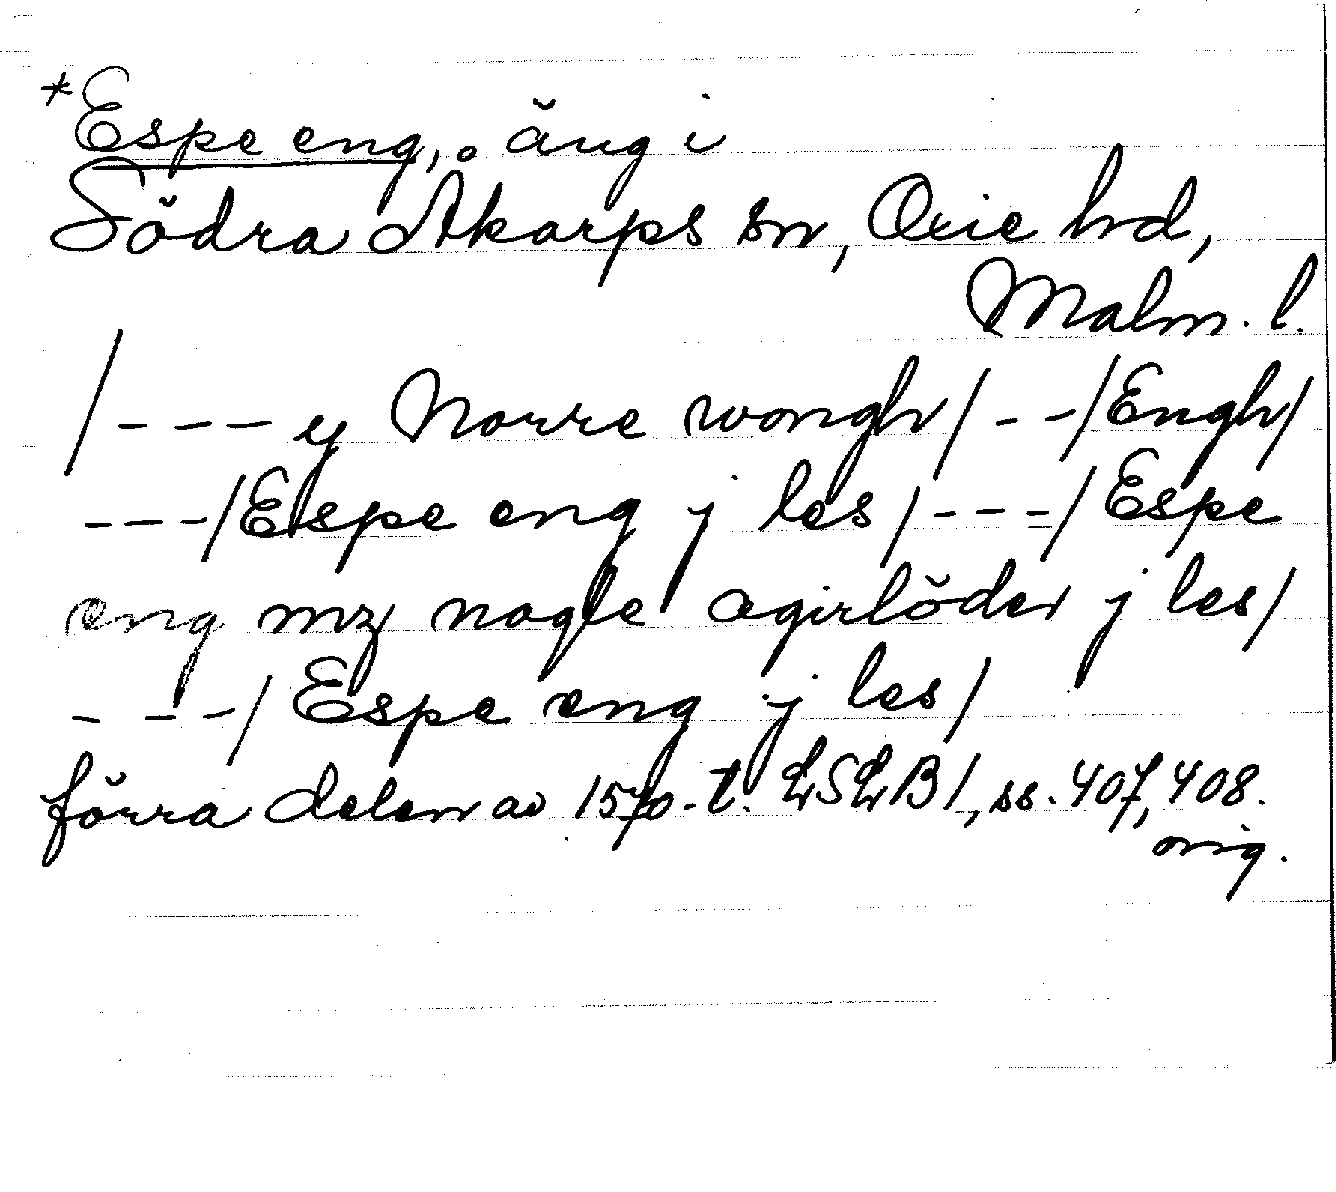 *Espe eng, äng i
Södra Åkarps sn, Oxie hd,
Malm. l.
/---y Norre wongh/--/Engh/
---/Espe eng j les/---/Espe
eng mz nogle agirlöder j les/
---/Espe eng j les/
förra delen av 1570-t. LSLB 1, ss. 407, 408.
orig.